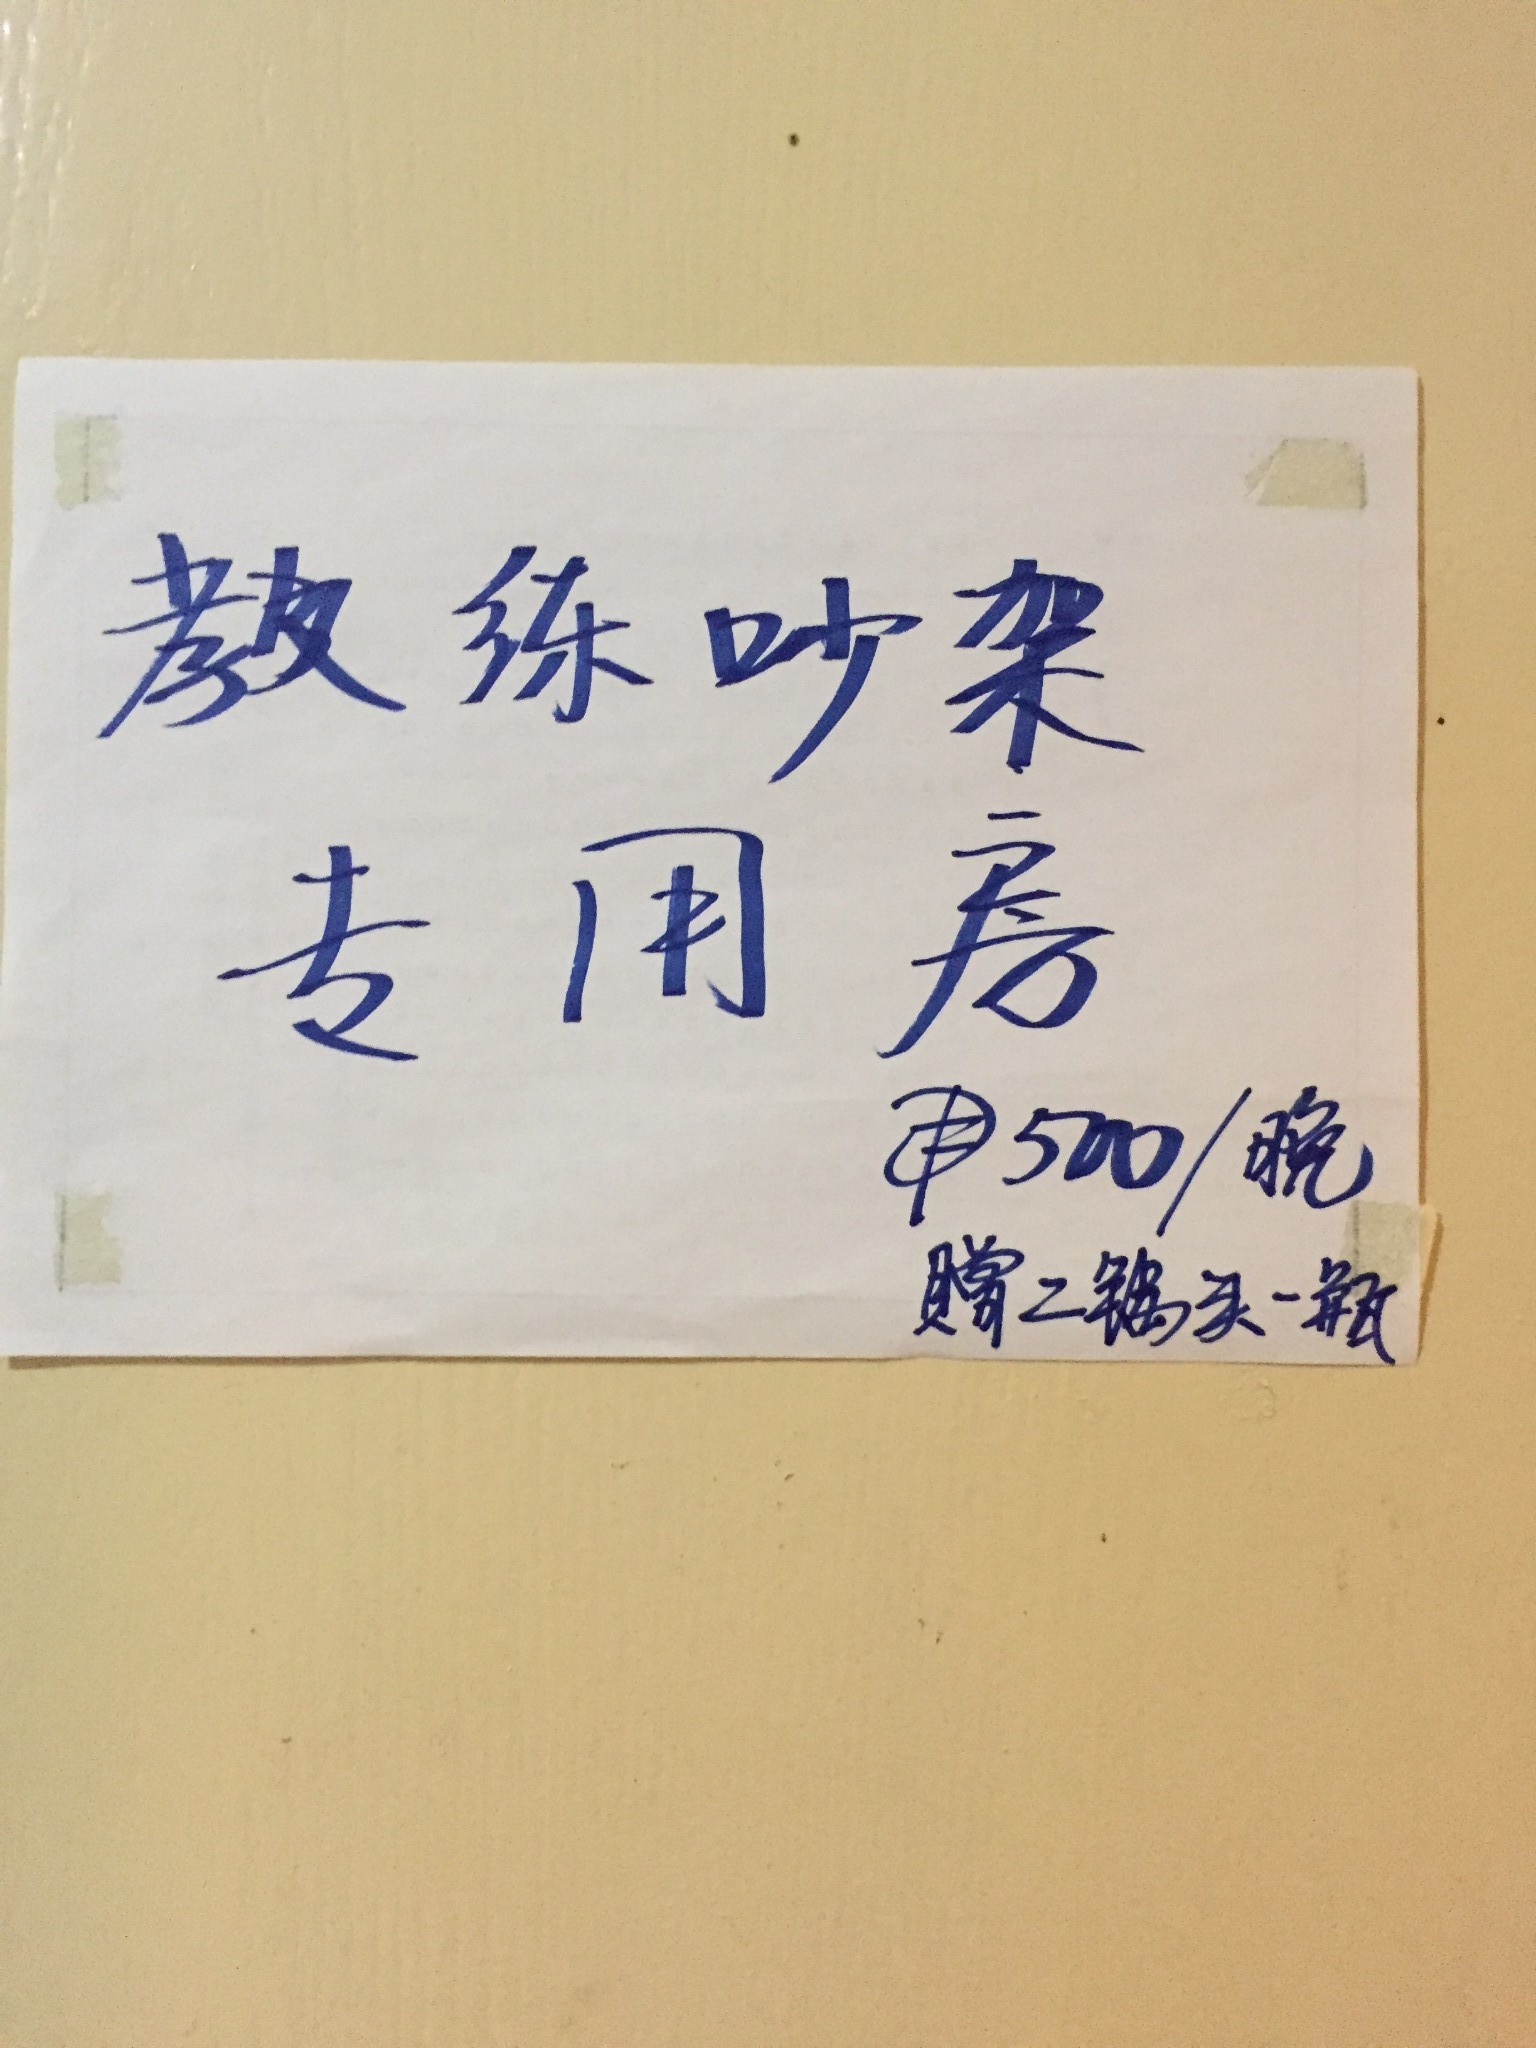 教练吵架
专用房
¥500/晚
赠二锅头一瓶